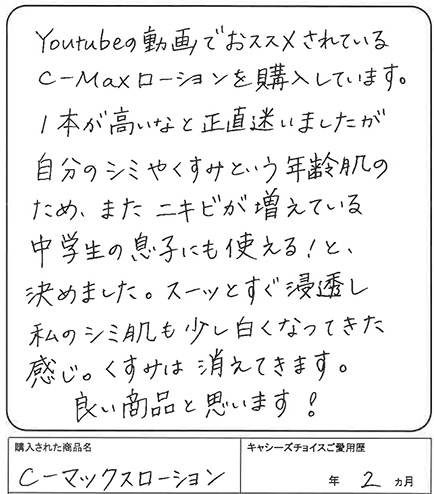 Youtubeの動画でおススメされている
C-Maxローションを購入しています。
1本が高いなと正直迷いましたが
自分のシミやくすみという年齢肌の
ため、またニキビが増えている
中学生の息子にも使える！と、
決めました。スーッとすぐ浸透し
私のシミ肌も少し白くなってきた
感じ。くすみは消えてきます。
良い商品と思います！
購入された商品名
キャシーズチョイスご愛用歴
C-マックスローション
年 2 ヵ月